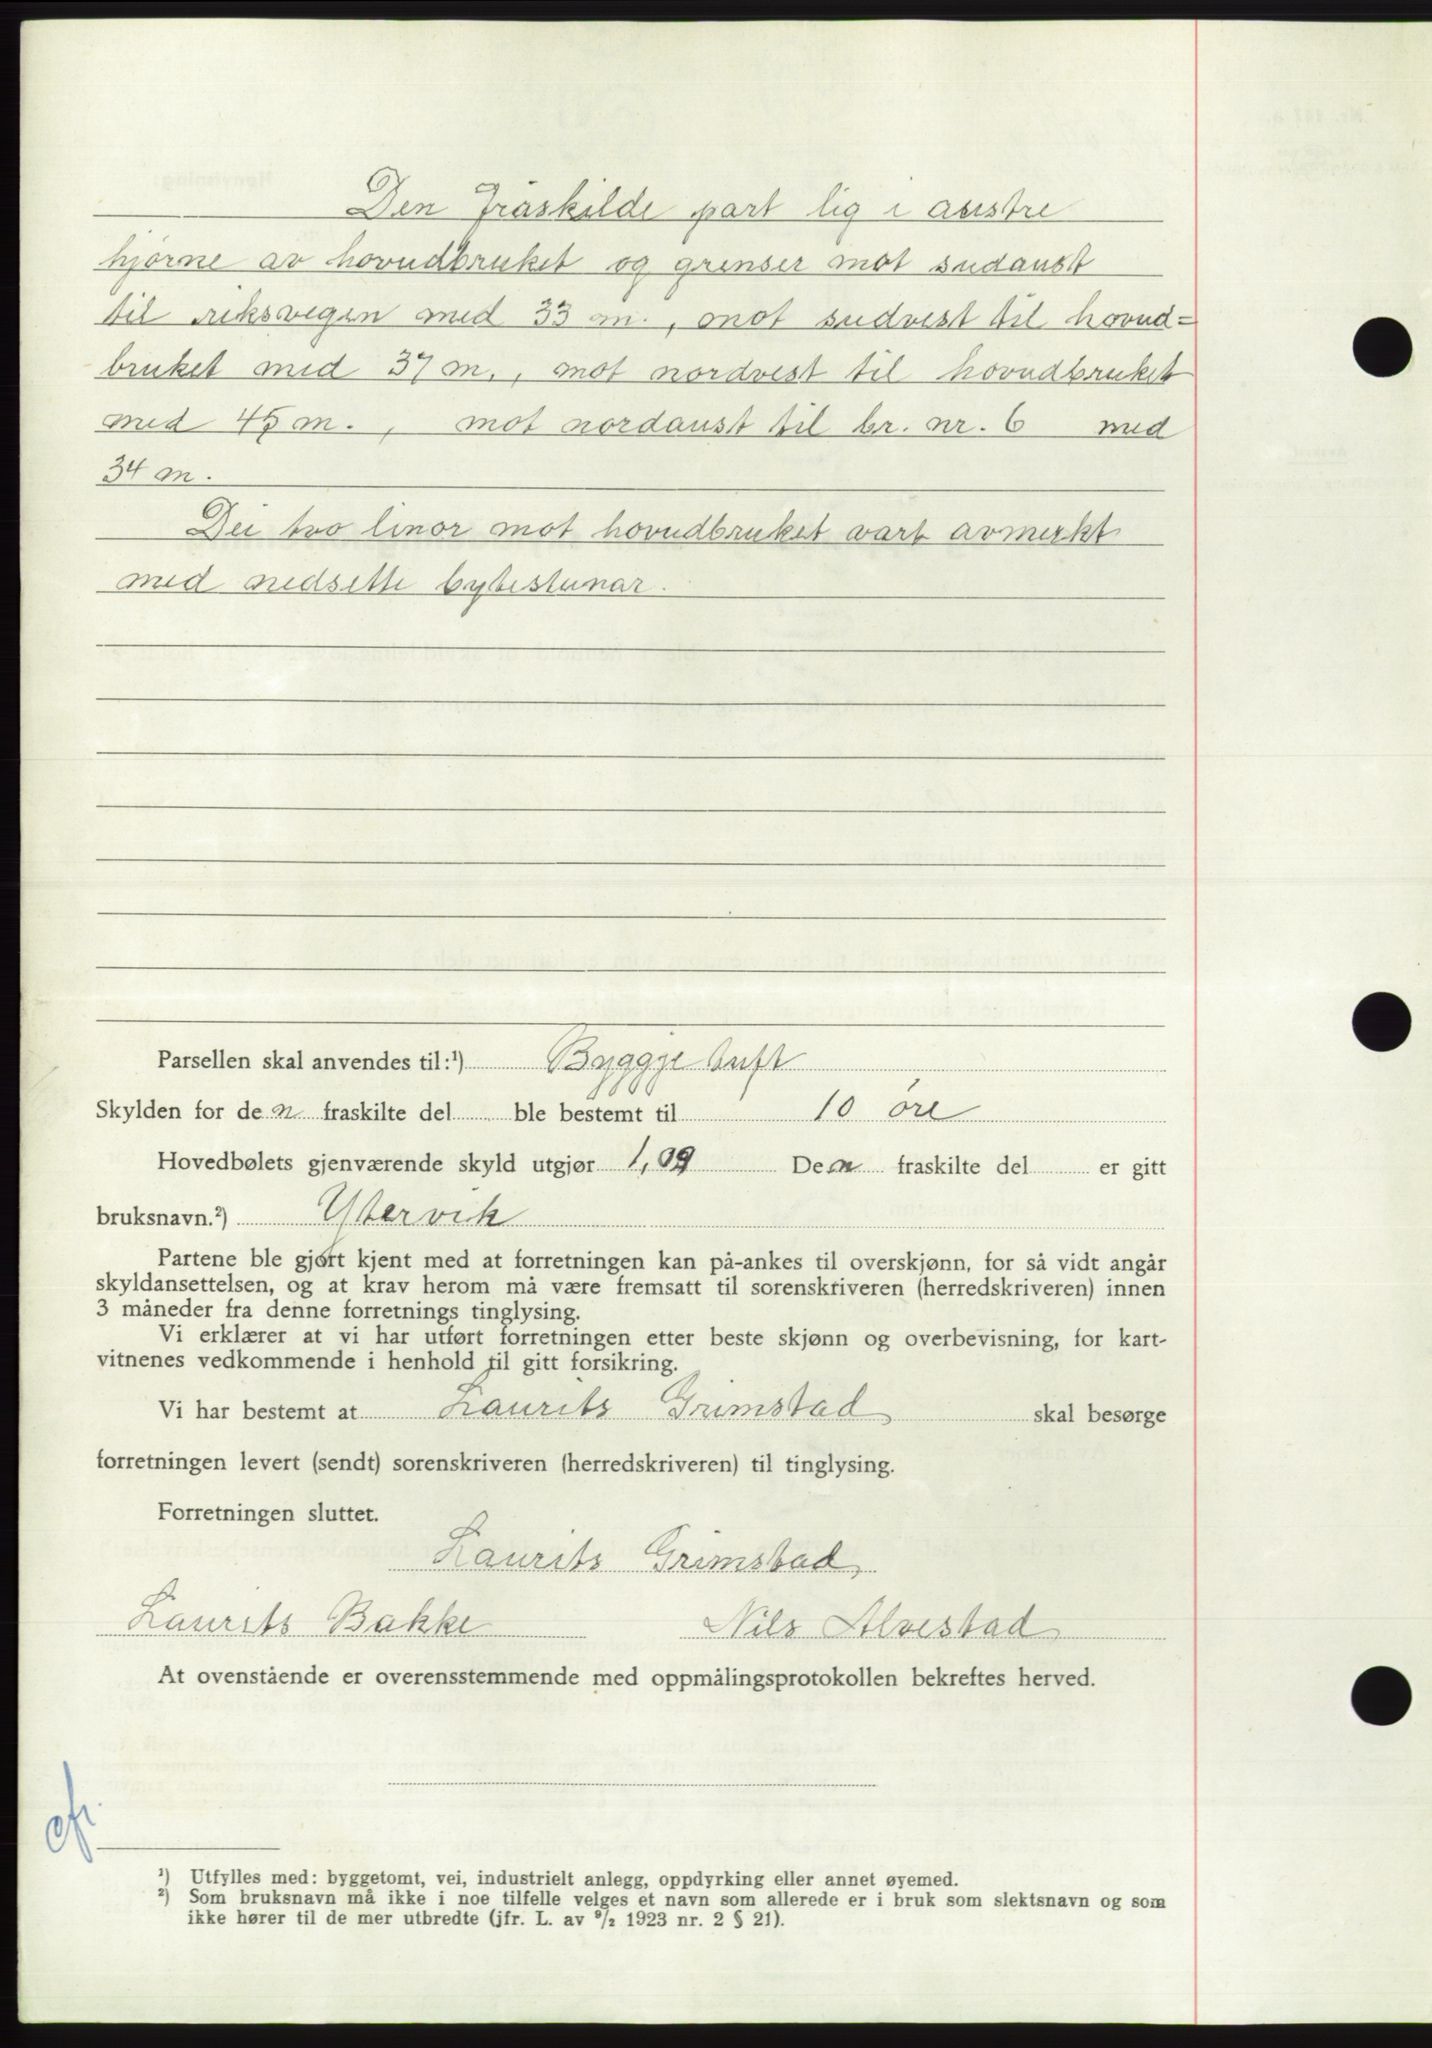 Den fråskilde part lig i austre
hjørne av hovudbruket og grenser mot sudaust
til riksvegen med 33 m., mot sudvest til hovud=
bruket med 37 m., mot nordvest til hovudbruket
med 45 m., mot nordaust til br. nr. 6 med
34 m.
Dei tvo linor mot hovudbruket vart avmerkt
med nedsette bytestunar.
Parsellen skal anvendes til:¹) Byggje tuft
Skylden for den fraskilte del ble bestemt til 10 øre
Hovedbølets gjenværende skyld utgjør 1,09 Den fraskilte del er gitt
bruksnavn.²) Ytervik
Partene ble gjort kjent med at forretningen kan på-ankes til overskjønn, for så vidt angår
skyldansettelsen, og at krav herom må være fremsatt til sorenskriveren (herredskriveren) innen
3 måneder fra denne forretnings tinglysing.
Vi erklærer at vi har utført forretningen etter beste skjønn og overbevisning, for kart-
vitnenes vedkommende i henhold til gitt forsikring.
Vi har bestemt at Laurits Grimstad skal besørge
forretningen levert (sendt) sorenskriveren (herredskriveren) til tinglysing.
Forretningen sluttet.
Laurits Grimstad
Laurits Bakke Nils Alvestad
At ovenstående er overensstemmende med oppmålingsprotokollen bekreftes herved.
cfr.
¹) Utfylles med: byggetomt, vei, industrielt anlegg, oppdyrking eller annet øyemed.
²) Som bruksnavn må ikke i noe tilfelle velges et navn som allerede er i bruk som slektsnavn og som
ikke hører til de mer utbredte (jfr. L. av ⁹/₂ 1923 nr. 2 § 21).